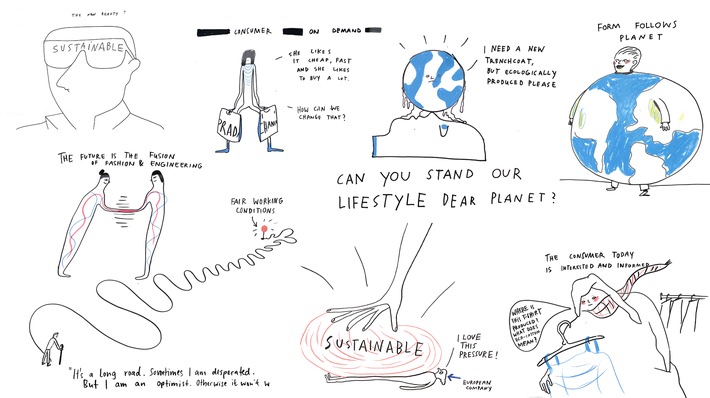 THE NEW BEAUTY?
SUSTAINABLE
CONSUMER ON DEMAND
SHE LIKES
IT CHEAP, FAST
AND SHE LIKES
TO BUY A LOT.
HOW CAN WE
CHANGE THAT?
PRAD
I NEED A NEW
TRENCHCOAT,
BUT ECOLOGICALLY
PRODUCED PLEASE
FORM FOLLOWS
PLANET
THE FUTURE IS THE FUSION
OF FASHION & ENGINEERING
FAIR WORKING
CONDITIONS
CAN YOU STAND OUR
LIFESTYLE DEAR PLANET?
"It's a long road. Sometimes I am desperated.
But I am an optimist. Otherwise it won't w
SUSTAINABLE
I LOVE
THIS
PRESSURE!
EUROPEAN
COMPANY
THE CONSUMER TODAY
IS INTERESTED AND INFORMED
WHERE IS
THIS T-SHIRT
PRODUCED?
WHAT DOES
MEAN?